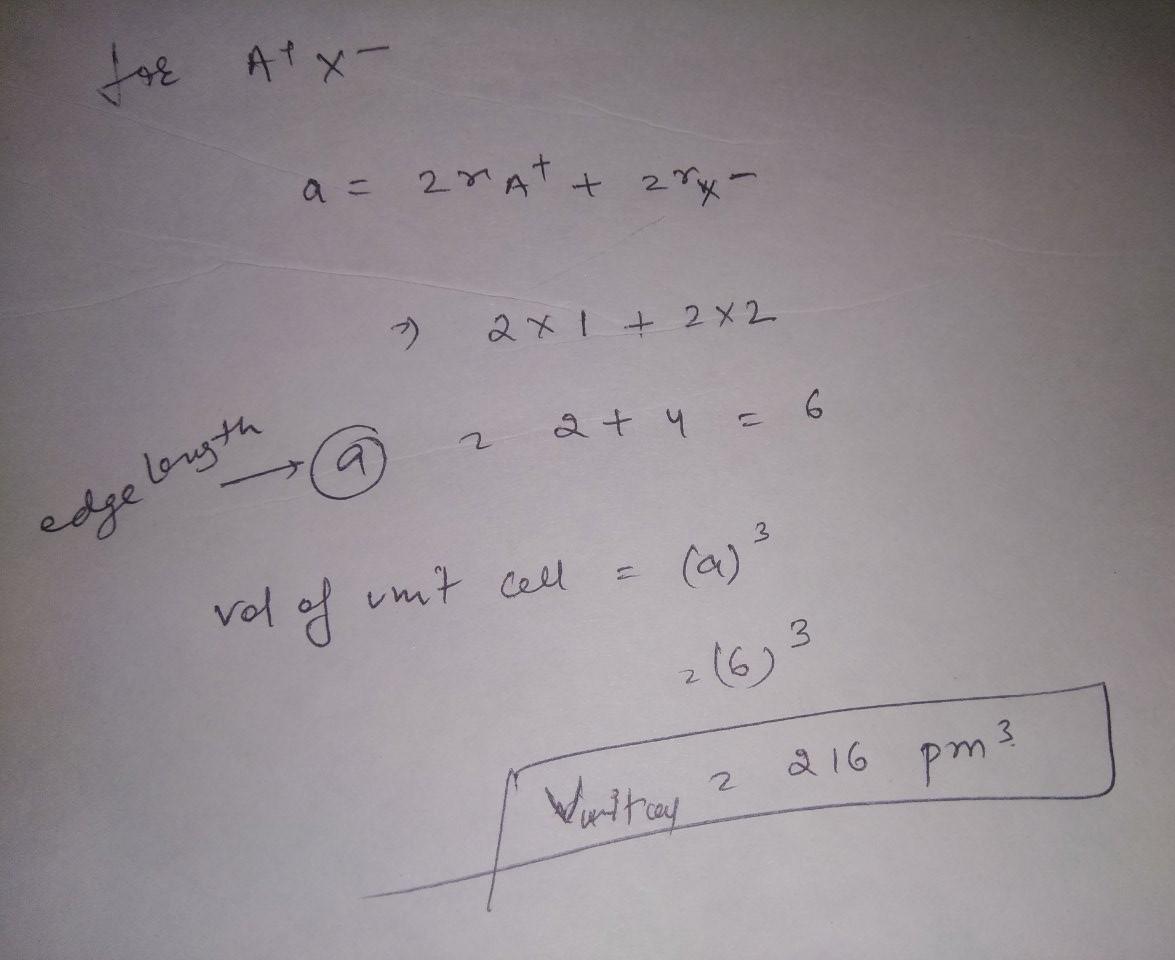 for A+ X-
a = 2rA+ + 2rX-
⇒ 2×1 + 2×2
edge length → a = 2+4 = 6
vol of unit cell = (a)³
= (6)³
Vunit cell = 216 pm³